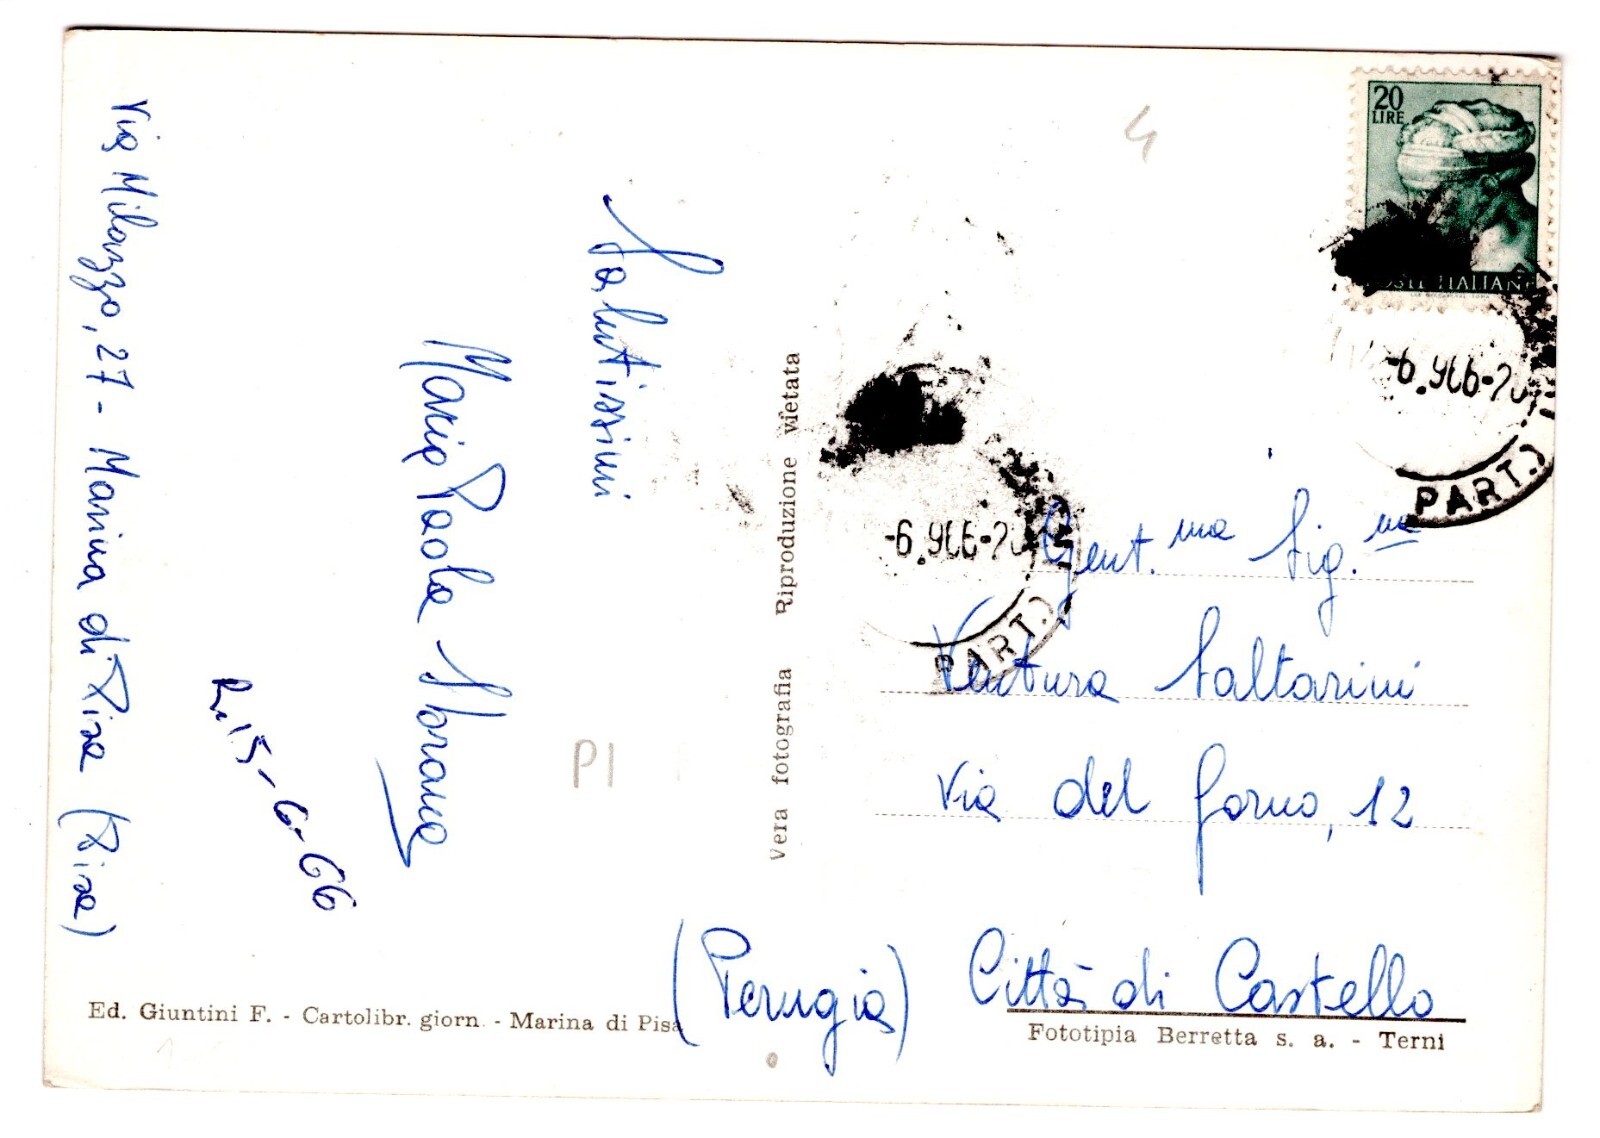 Via Milazzo, 27 - Marina di Pisa (Pisa)
R. 15-6-66
Maria Paola
Salutissimi
P1
4
Vera fotografia Riproduzione vietata
20
LIRE
POSTE ITALIANE
-6.966-20
PART.)
-6.966-20
PART.)
Gent.ma Sig.na
Ventura Saltarini
Via del Forno, 12
(Perugia) Città di Castello
Ed. Giuntini F. - Cartolibr. giorn. - Marina di Pisa
Fototipia Berretta s. a. - Terni